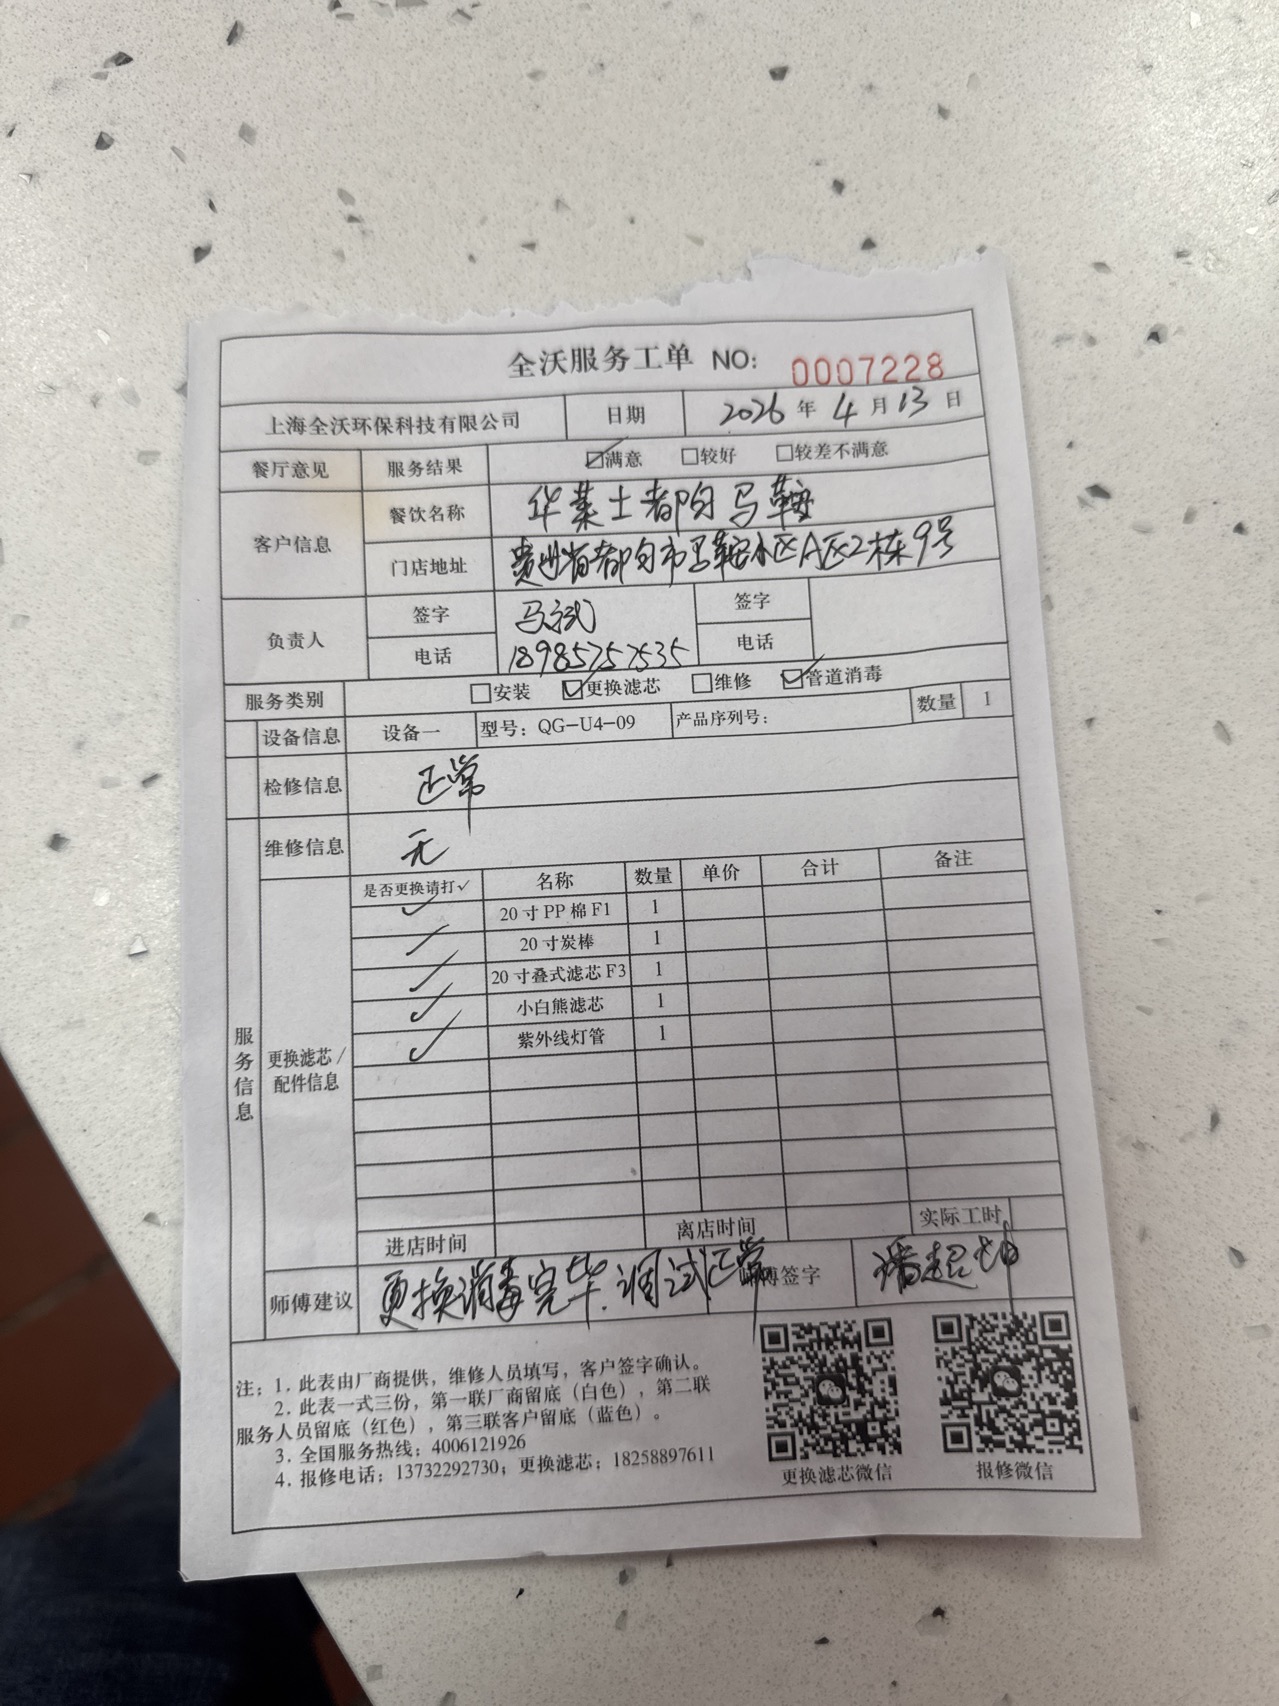 全沃服务工单 NO: 0007228
上海全沃环保科技有限公司 日期 2026 年 4 月 13 日
餐厅意见 服务结果 ☑满意 □较好 □较差不满意
客户信息 餐饮名称 华莱士都匀马鞍
门店地址 贵州省都匀市马鞍小区A区2栋9号
负责人 签字 马斌 签字
电话 18985757535 电话
服务类别 □安装 ☑更换滤芯 □维修 ☑管道消毒
设备信息 设备一 型号: QG-U4-09 产品序列号: 数量 1
检修信息 正常
维修信息 无
服务信息
更换滤芯/配件信息
是否更换请打✓ 名称 数量 单价 合计 备注
✓ 20寸PP棉F1 1
✓ 20寸炭棒 1
✓ 20寸叠式滤芯F3 1
✓ 小白熊滤芯 1
✓ 紫外线灯管 1
进店时间 离店时间 实际工时
师傅建议 更换消毒完毕.调试正常 师傅签字 潘起坤
注: 1. 此表由厂商提供，维修人员填写，客户签字确认。
2. 此表一式三份，第一联厂商留底（白色），第二联
服务人员留底（红色），第三联客户留底（蓝色）。
3. 全国服务热线: 4006121926
4. 报修电话: 13732292730; 更换滤芯: 18258897611
更换滤芯微信 报修微信